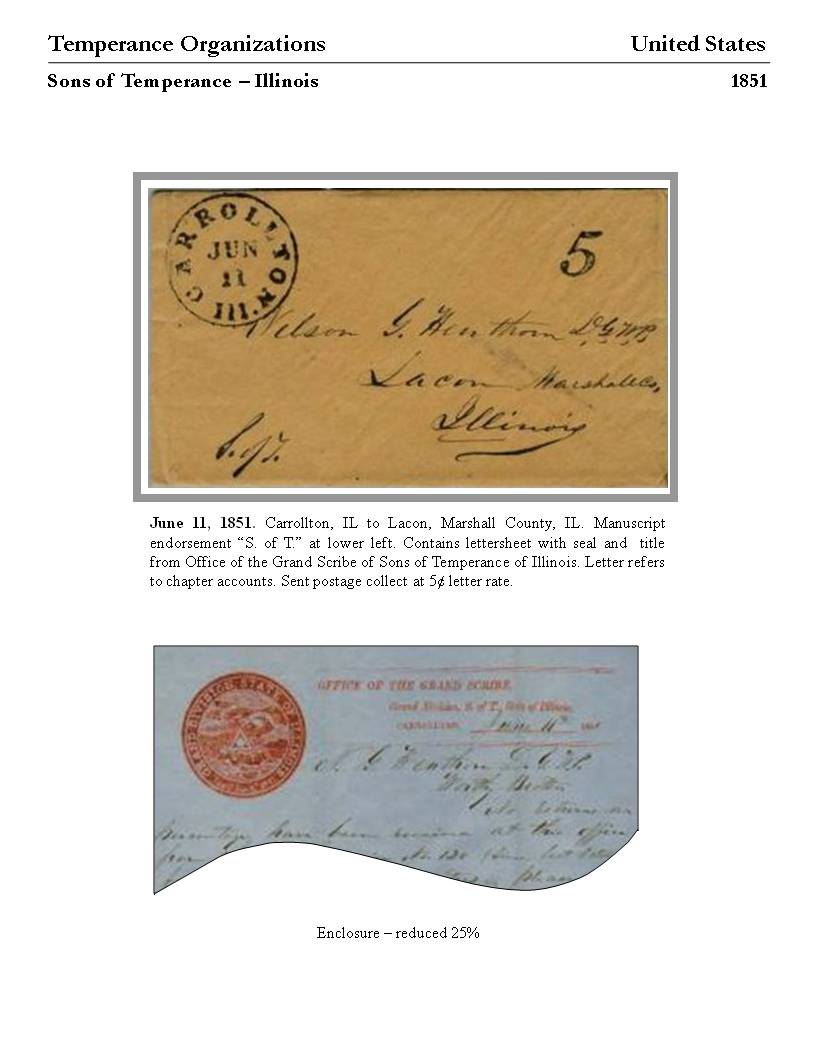 Temperance Organizations United States
Sons of Temperance – Illinois 1851
CARROLLTON Ill.
JUN
11
5
Nelson G. Henthorn D.G.W.P.
Lacon Marshall Co,
Illinois
S. of T.
June 11, 1851. Carrollton, IL to Lacon, Marshall County, IL. Manuscript
endorsement “S. of T.” at lower left. Contains lettersheet with seal and title
from Office of the Grand Scribe of Sons of Temperance of Illinois. Letter refers
to chapter accounts. Sent postage collect at 5¢ letter rate.
GRAND DIVISION STATE OF ILLINOIS
OFFICE OF THE GRAND SCRIBE,
Grand Division, S. of T., State of Illinois,
CARROLLTON, June 11th 185
N. G. Henthorn D.G.W.P.
Worthy Brother
No returns or
percentage have been received at this office
from No. 130 since last
Please
Enclosure – reduced 25%